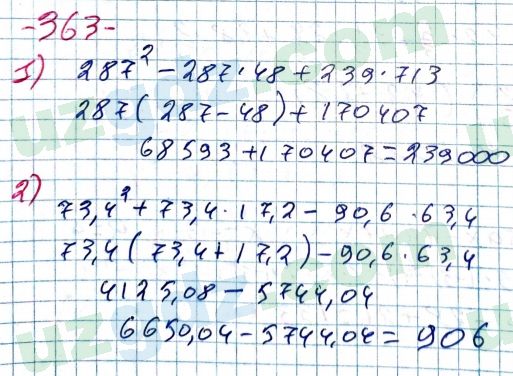 -363-
1) 287² - 287·48 + 239·713
287(287-48) + 170407
68593 + 170407 = 239000
2)
73,4² + 73,4·17,2 - 90,6·63,4
73,4(73,4 + 17,2) - 90,6·63,4
4125,08 - 5744,04
6650,04 - 5744,04 = 906